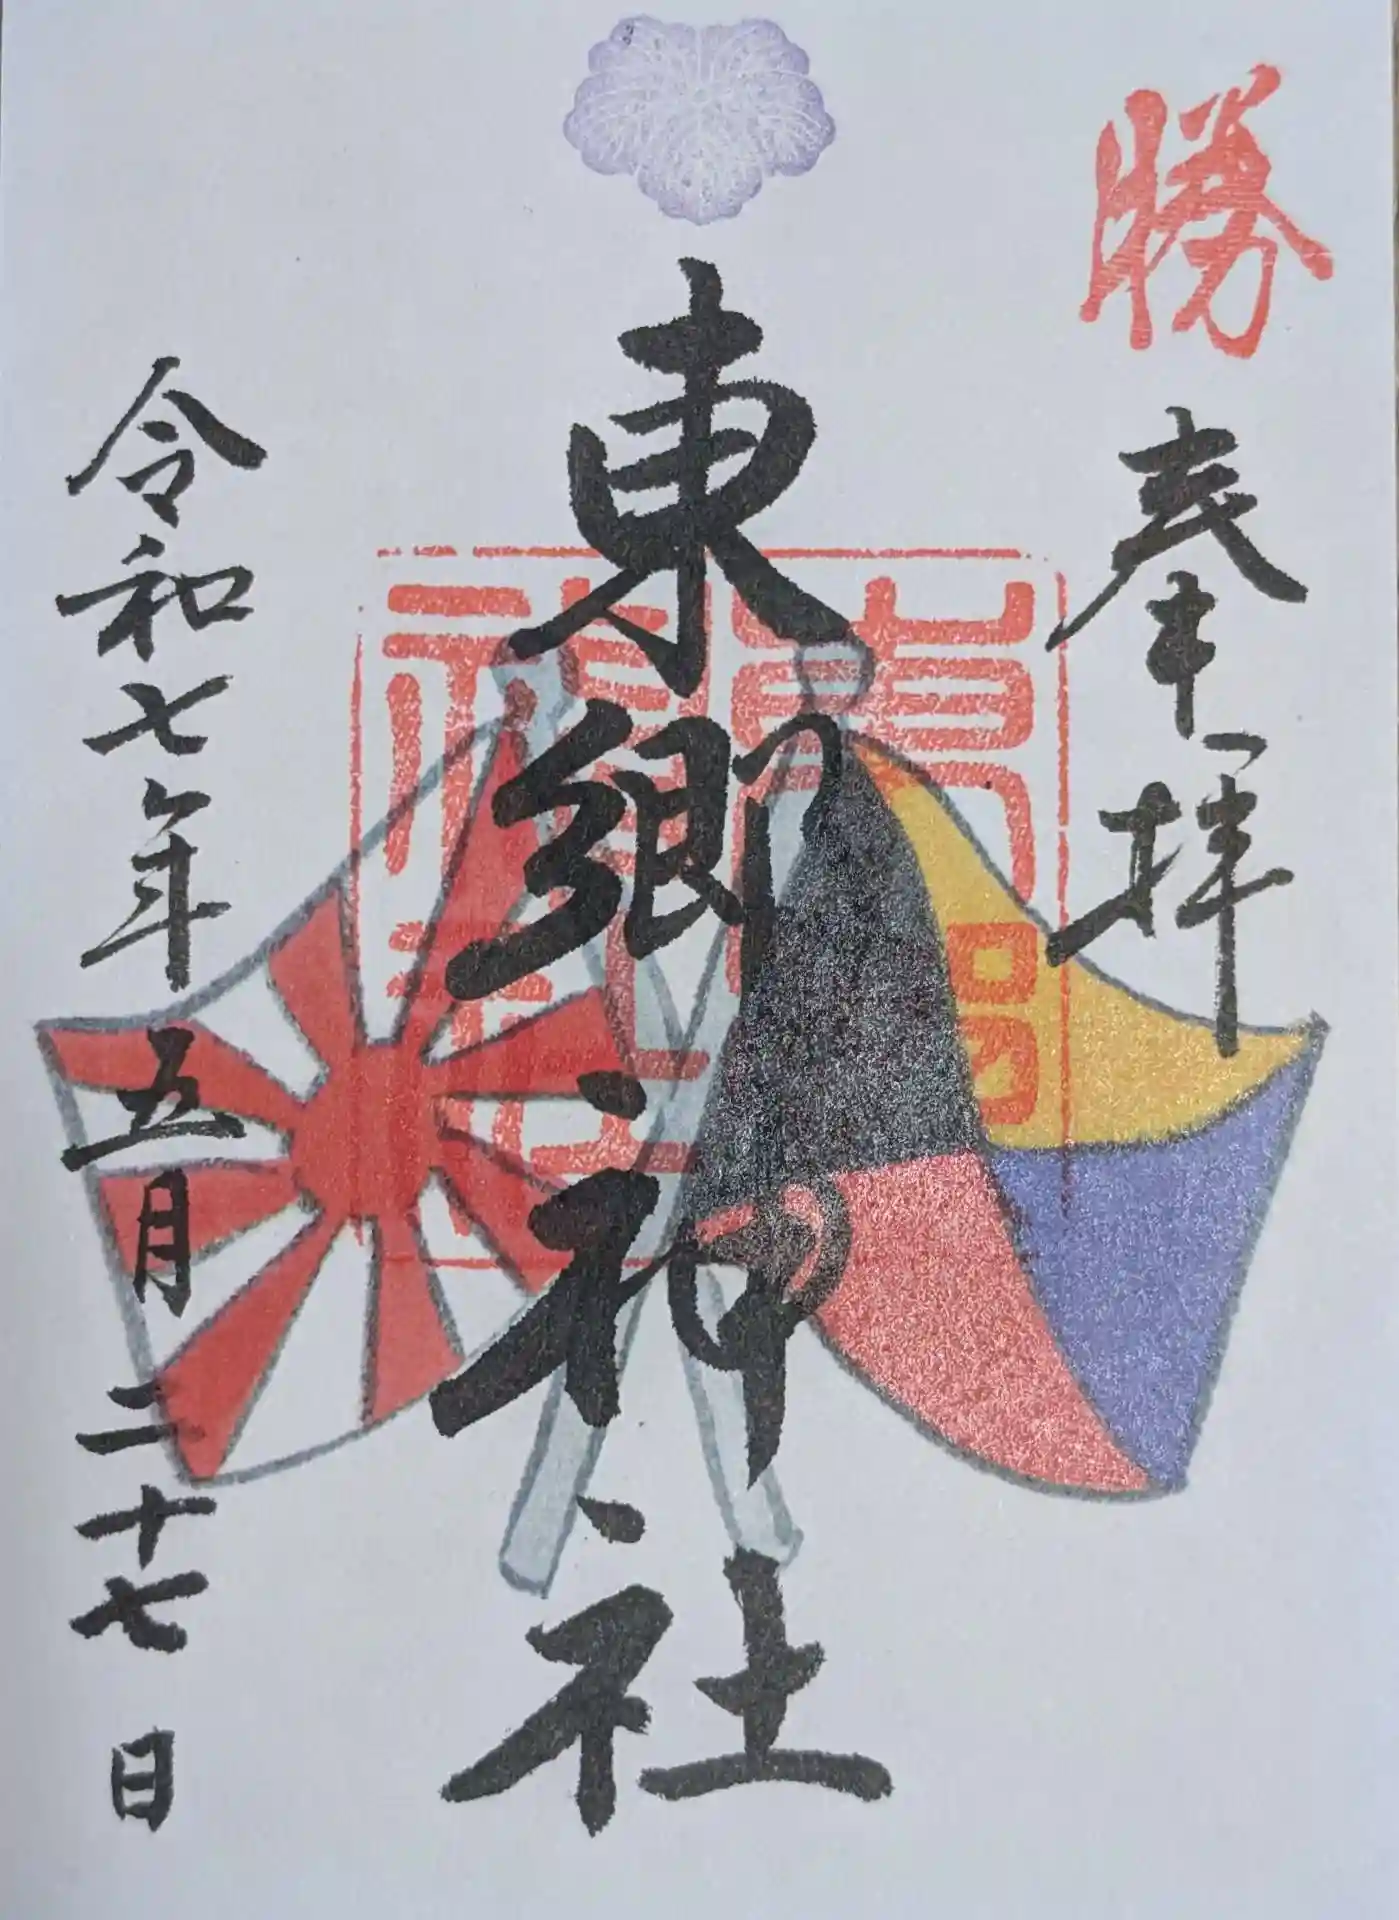 勝
奉拝
東郷神社
東郷神社
令和七年五月二十七日